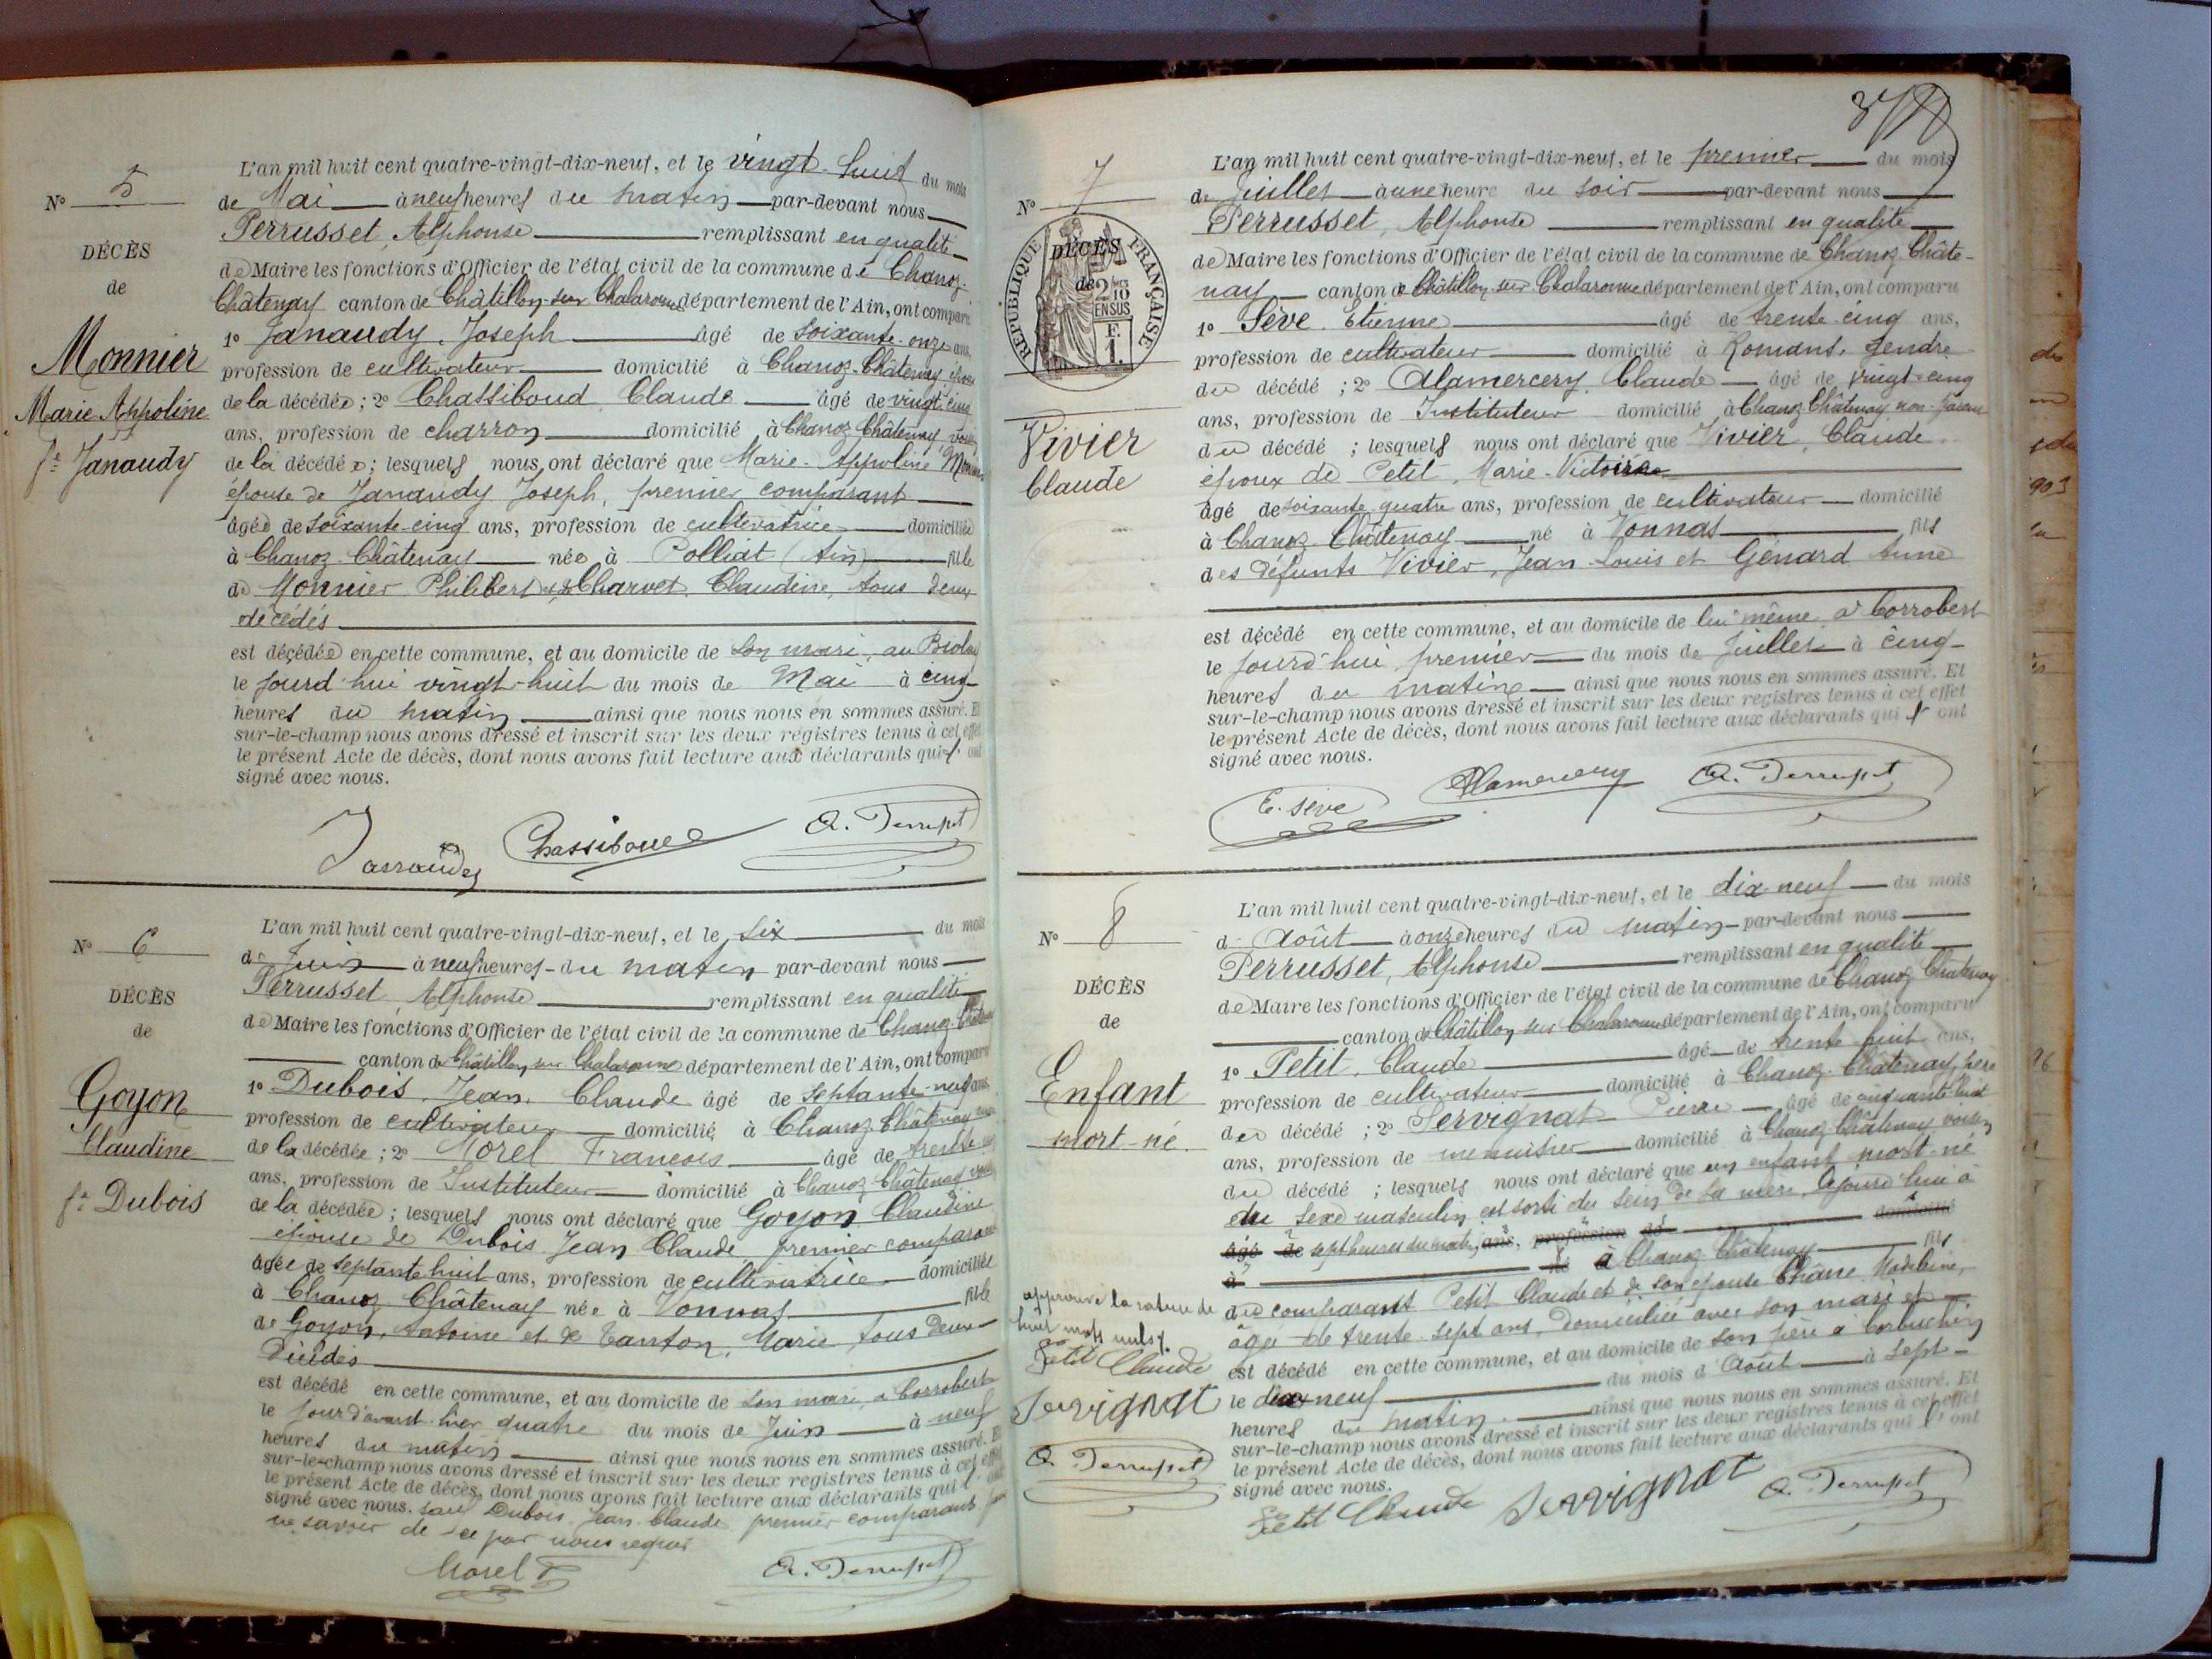 N° 5
DÉCÈS
de
Monnier
Marie Appoline
fe Janaudy
L'an mil huit cent quatre-vingt-dix-neuf, et le vingt-huit du mois
de Mai à neuf heures du matin par-devant nous
Perrusset, Alphonse remplissant en qualité
de Maire les fonctions d'Officier de l'état civil de la commune de Chanoz-
Châtenay canton de Châtillon-sur-Chalaronne département de l'Ain, ont comparu
1° Janaudy, Joseph âgé de soixante-onze ans,
profession de cultivateur domicilié à Chanoz-Châtenay, époux
de la décédée ; 2° Chassiboud Claude âgé de vingt-cinq
ans, profession de charron domicilié à Chanoz-Châtenay voisin
de la décédée ; lesquels nous ont déclaré que Marie-Appoline Monnier
épouse de Janaudy Joseph, premier comparant
âgée de soixante-cinq ans, profession de cultivatrice domiciliée
à Chanoz-Châtenay née à Polliat (Ain) fille
de Monnier Philibert et de Charvet, Claudine, tous deux
décédés
est décédée en cette commune, et au domicile de son mari, au
le jourd'hui vingt-huit du mois de Mai à cinq
heures du matin ainsi que nous nous en sommes assuré. Et
sur-le-champ nous avons dressé et inscrit sur les deux registres tenus à cet effet
le présent Acte de décès, dont nous avons fait lecture aux déclarants qui l'ont
signé avec nous.
Janaudy Chassiboud A. Perrusset
N° 6
DÉCÈS
de
Goyon
Claudine
fe Dubois
L'an mil huit cent quatre-vingt-dix-neuf, et le six du mois
de Juin à neuf heures du matin par-devant nous
Perrusset, Alphonse remplissant en qualité
de Maire les fonctions d'Officier de l'état civil de la commune de Chanoz-Châtenay
canton de Châtillon-sur-Chalaronne département de l'Ain, ont comparu
1° Dubois, Jean, Claude âgé de septante-neuf ans,
profession de cultivateur domicilié à Chanoz-Châtenay mari
de la décédée ; 2° Morel François âgé de trente
ans, profession de Instituteur domicilié à Chanoz-Châtenay voisin
de la décédée ; lesquels nous ont déclaré que Goyon, Claudine
épouse de Dubois Jean Claude premier comparant
âgée de septante-huit ans, profession de cultivatrice domiciliée
à Chanoz-Châtenay née à Vonnas fille
de Goyon, Antoine et de Tanton, Marie, tous deux
décédés
est décédé en cette commune, et au domicile de son mari, à Corrobert
le jour d'avant-hier quatre du mois de Juin à neuf
heures du matin ainsi que nous nous en sommes assuré. Et
sur-le-champ nous avons dressé et inscrit sur les deux registres tenus à cet effet
le présent Acte de décès, dont nous avons fait lecture aux déclarants qui l'ont
signé avec nous. sauf Dubois Jean-Claude premier comparant pour
ne savoir de ce par nous requis
Morel F A. Perrusset
N° 7
DÉCÈS
de
RÉPUBLIQUE FRANÇAISE
2/10 EN SUS
F. 1.
Vivier
Claude
L'an mil huit cent quatre-vingt-dix-neuf, et le premier du mois
de Juillet à une heure du soir par-devant nous
Perrusset, Alphonse remplissant en qualité
de Maire les fonctions d'Officier de l'état civil de la commune de Chanoz-Châte-
nay canton de Châtillon-sur-Chalaronne département de l'Ain, ont comparu
1° Sève, Etienne âgé de trente-cinq ans,
profession de cultivateur domicilié à Romans, gendre
du décédé ; 2° Alamercery, Claude âgé de vingt-cinq
ans, profession de Instituteur domicilié à Chanoz-Châtenay non-parent
du décédé ; lesquels nous ont déclaré que Vivier, Claude
époux de Petit, Marie-Victoire
âgé de soixante-quatre ans, profession de cultivateur domicilié
à Chanoz-Châtenay né à Vonnas fils
des défunts Vivier, Jean-Louis et Génard
est décédé en cette commune, et au domicile de lui-même, à Corrobert
le jourd'hui premier du mois de Juillet à cinq
heures du matin ainsi que nous nous en sommes assuré. Et
sur-le-champ nous avons dressé et inscrit sur les deux registres tenus à cet effet
le présent Acte de décès, dont nous avons fait lecture aux déclarants qui l'ont
signé avec nous.
E. Sève Alamercery A. Perrusset
N° 8
DÉCÈS
de
Enfant
mort-né
L'an mil huit cent quatre-vingt-dix-neuf, et le dix-neuf du mois
d'Août à onze heures du matin par-devant nous
Perrusset, Alphonse remplissant en qualité
de Maire les fonctions d'Officier de l'état civil de la commune de Chanoz-Châtenay
canton de Châtillon sur Chalaronne département de l'Ain, ont comparu
1° Petit, Claude âgé de trente-huit ans,
profession de cultivateur domicilié à Chanoz-Châtenay, père
du décédé ; 2° Servignat Pierre âgé de cinquante-huit
ans, profession de menuisier domicilié à Chanoz-Châtenay voisin
du décédé ; lesquels nous ont déclaré que un enfant mort-né
du sexe masculin est sorti du sein de sa mère, cejourd'hui à
âgé de sept heures du matin, ans, profession de domicilié
à né à Chanoz-Châtenay fils
du comparant Petit Claude et de son épouse Chane Madeleine,
âgée de trente-sept ans, domiciliée avec son mari et
est décédé en cette commune, et au domicile de son père à
le dix-neuf du mois d'Août à sept
heures du matin ainsi que nous nous en sommes assuré. Et
sur-le-champ nous avons dressé et inscrit sur les deux registres tenus à cet effet
le présent Acte de décès, dont nous avons fait lecture aux déclarants qui l'ont
signé avec nous.
Petit Claude Servignat A. Perrusset
approuvé la rature de
huit mots nuls.
Petit Claude
Servignat
A. Perrusset